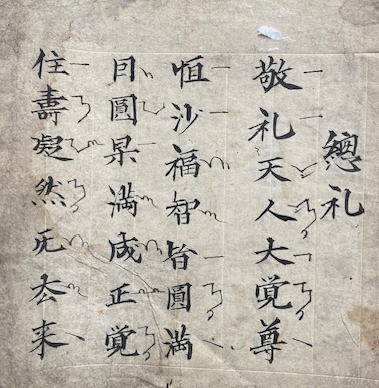 總礼
敬礼天人大覚尊
恒沙福智皆圓満
因圓果満成正覚
住壽凝然无去来